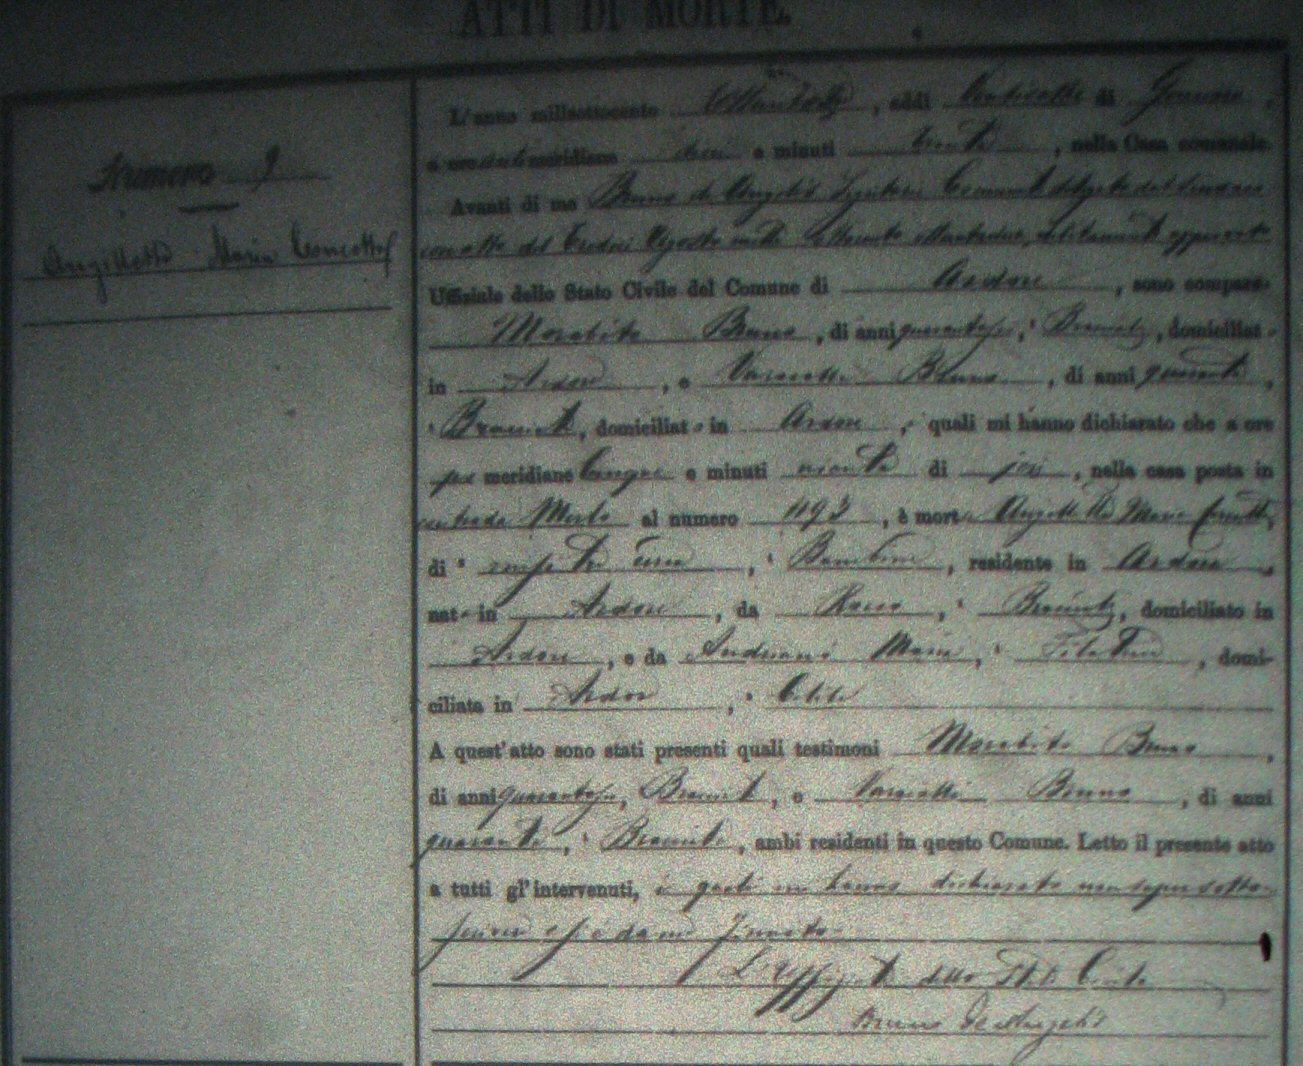 ATTI DI MORTE.
Numero 9
Angilletta Maria Concetta
L'anno millottocento , addì di ,
a ore antimeridiane dieci e minuti trenta , nella Casa comunale.
Avanti di me Bruno de Angelis Segretario Comunale delegato dal Sindaco
con atto del tredici Agosto mille ottocento , debitamente approvato
Uffiziale dello Stato Civile del Comune di Ardore , sono compars-
Morabito Bruno , di anni , Bracciale , domiciliat-
in Ardore , e Bruno , di anni quaranta ,
Bracciale , domiciliat- in Ardore , quali mi hanno dichiarato che a ore
pomeridiane cinque e minuti venti di jeri , nella casa posta in
contrada al numero 1193 , è mort- Angilletta Maria Concetta,
di , Bambina , residente in Ardore ,
nat- in Ardore , da Rocco , Bracciale , domiciliato in
Ardore , e da Maria , Filatrice , domi-
ciliata in Ardore ,
A quest'atto sono stati presenti quali testimoni Morabito Bruno ,
di anni , Bracciale , e Bruno , di anni
quaranta , Bracciale , ambi residenti in questo Comune. Letto il presente atto
a tutti gl'intervenuti, e questi mi hanno dichiarato non saper sotto-
scrivere si è da me firmato
L'Uffiziale dello Stato Civile
Bruno De Angelis